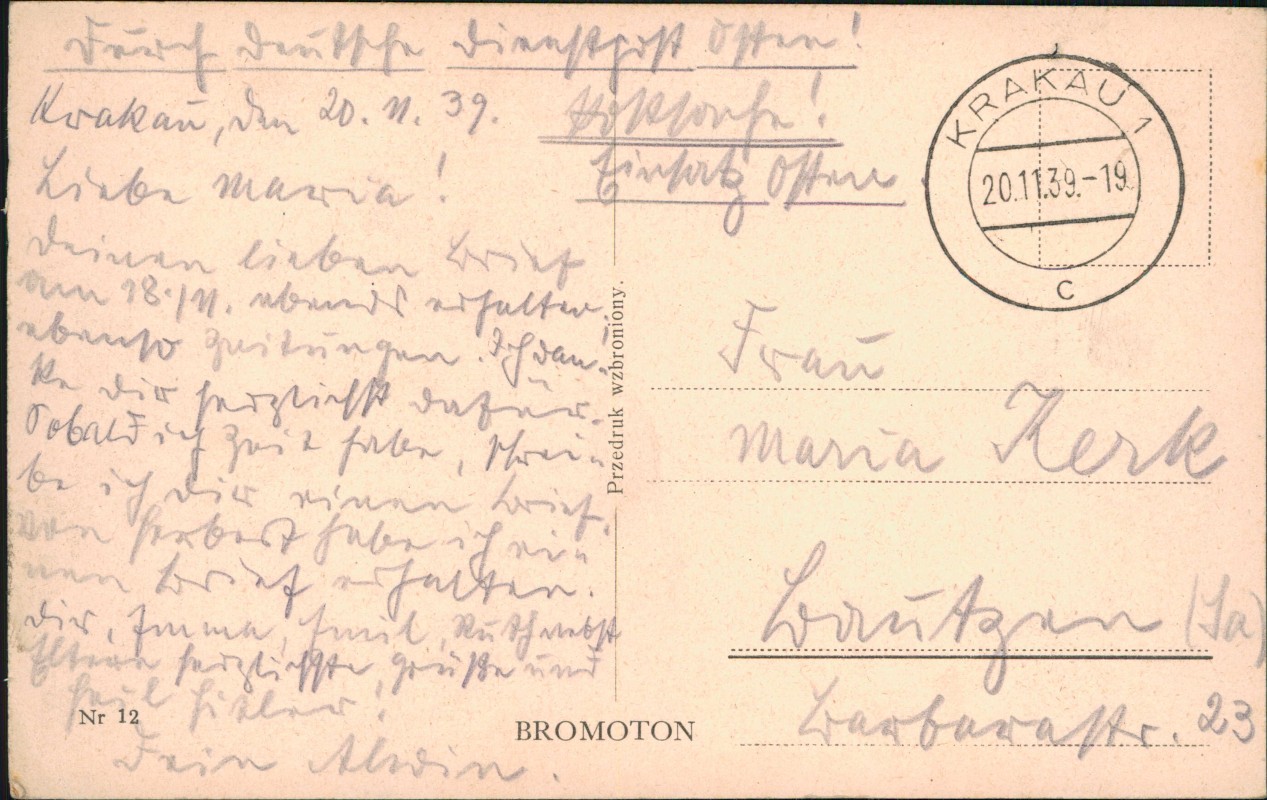 Durch Deutsche Dienstpost Osten!
Krakau, den 20. 11. 39.
Einsatz Osten
Liebe Maria!
Deinen lieben Brief
am 18./11. abends erhalten,
ebenso Zeitungen. Ich dan-
ke Dir herzlichst dafür.
Sobald ich Zeit habe, schrei-
be ich Dir einen Brief.
Von Herbert habe ich ei-
nen Brief erhalten.
Dir, Imma, Emil, Ruth nebst
Eltern herzlichste Grüße und
Heil Hitler!
Dein Alwin.
Nr 12
BROMOTON
Przedruk wzbroniony.
KRAKAU 1
20.11.39.-19
c
Frau
Maria Kerk
Bautzen (Sa)
Barbarastr. 23